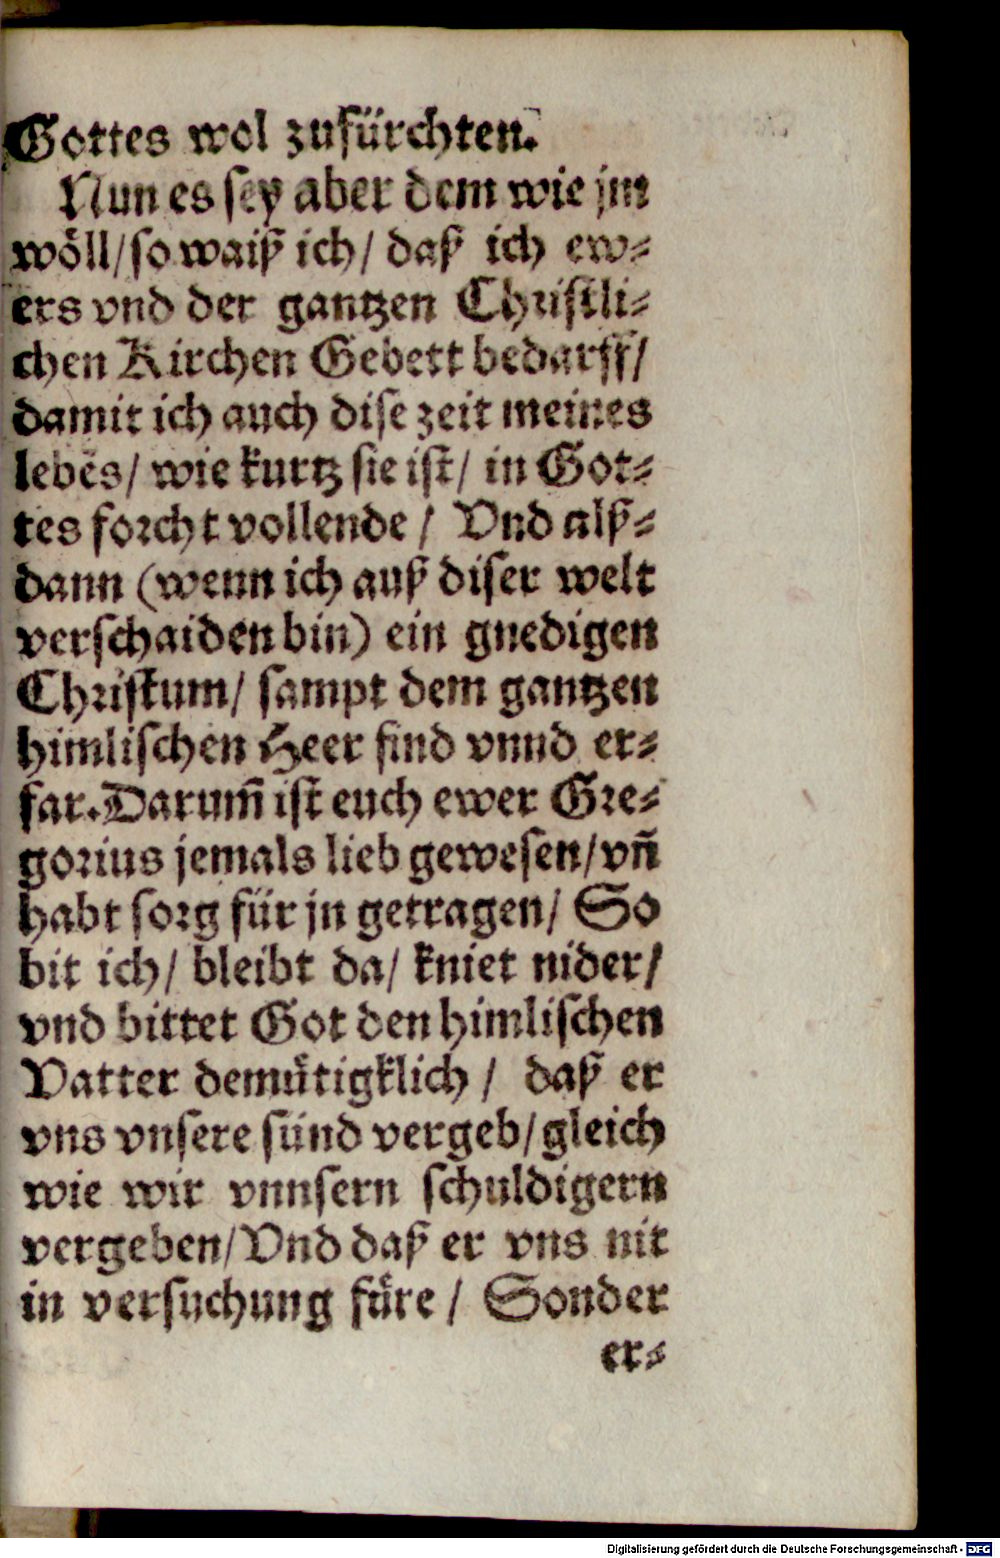 Gottes wol zufürchten.
Nun es sey aber dem wie jm
wöll/so waiß ich/ daß ich ew⸗
ers vnd der gantzen Christli⸗
chen Kirchen Gebett bedarff/
damit ich auch dise zeit meines
lebēs/ wie kurtz sie ist/ in Got⸗
tes forcht vollende / Vnd alß⸗
dann (wenn ich auß diser welt
verschaiden bin) ein gnedigen
Christum/ sampt dem gantzen
himlischen Heer find vnnd er⸗
far. Darum̄ ist euch ewer Gre⸗
gorius jemals lieb gewesen/vn̄
habt sorg für jn getragen/ So
bit ich/ bleibt da/ kniet nider/
vnd bittet Got den himlischen
Vatter demütigklich / daß er
vns vnsere sünd vergeb/gleich
wie wir vnnsern schuldigern
vergeben/Vnd daß er vns nit
in versuchung füre / Sonder
er⸗
Digitalisierung gefördert durch die Deutsche Forschungsgemeinschaft - DFG